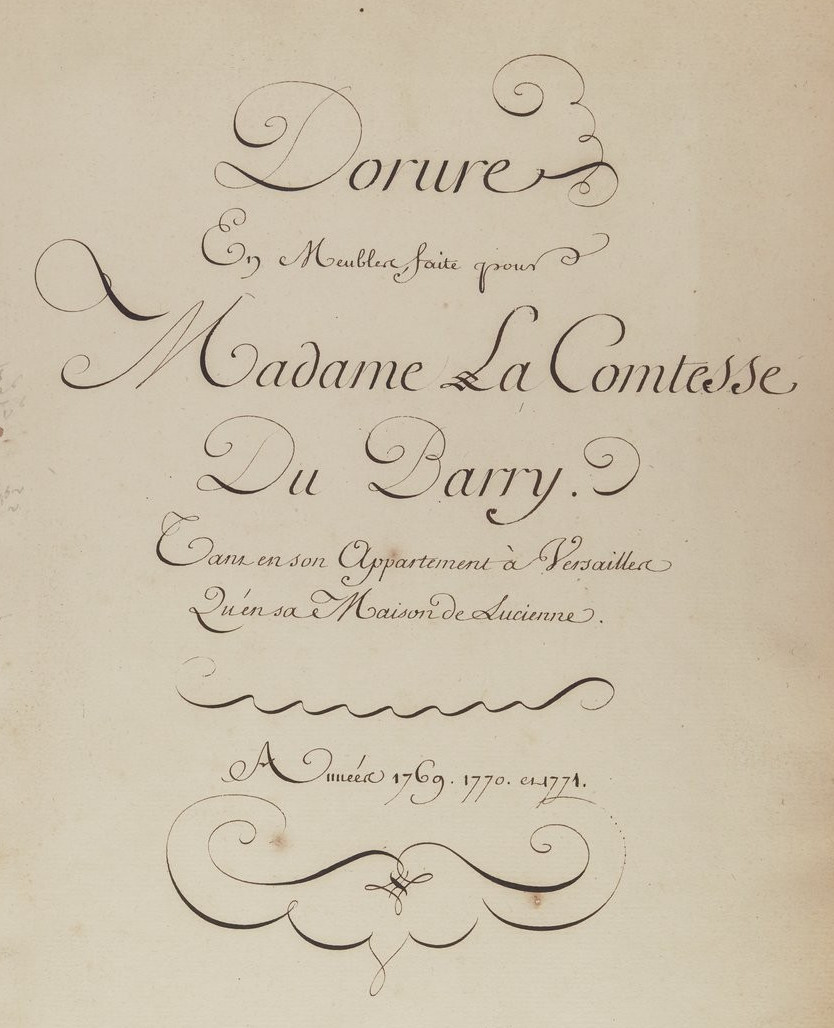 Dorure
En Meubles, faite pour
Madame La Comtesse
Du Barry.
Tant en son Appartement à Versailles
Qu'en sa Maison de Lucienne.
Années 1769. 1770. et 1771.